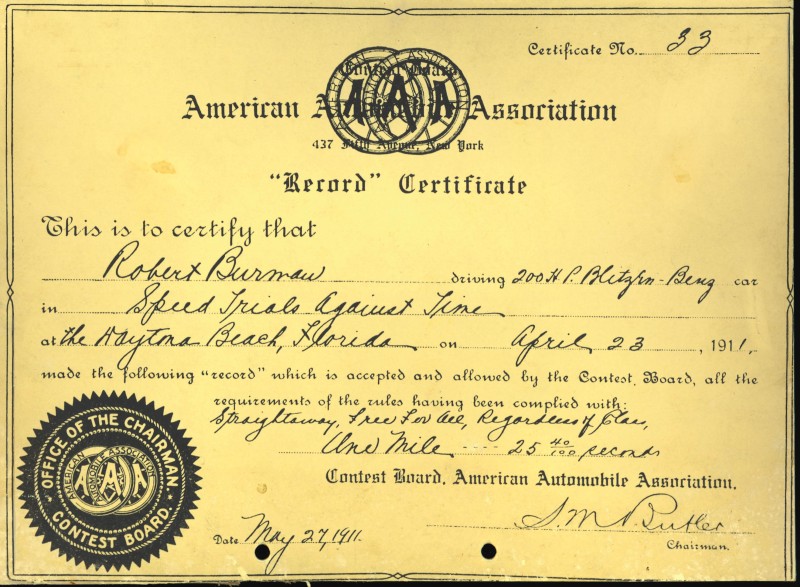 Certificate No. 33
Contest Board
AMERICAN AUTOMOBILE ASSOCIATION
AAA
American Automobile Association
437 Fifth Avenue, New York
"Record" Certificate
This is to certify that
Robert Burman driving 200 H P. Blitzen-Benz car
in Speed Trials Against Time
at the Daytona Beach, Florida on April 23, 1911.
made the following "record" which is accepted and allowed by the Contest Board, all the
requirements of the rules having been complied with:
Straightaway, Free For All, Regardless of Class,
One Mile ---- 25 40/100 seconds
Contest Board, American Automobile Association.
S. M. Butler
Chairman.
Date May 27, 1911.
OFFICE OF THE CHAIRMAN.
AMERICAN AUTOMOBILE ASSOCIATION
AAA
CONTEST BOARD.